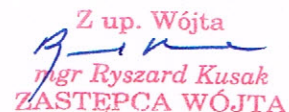 Z up. Wójta
mgr Ryszard Kusak
ZASTĘPCA WÓJTA